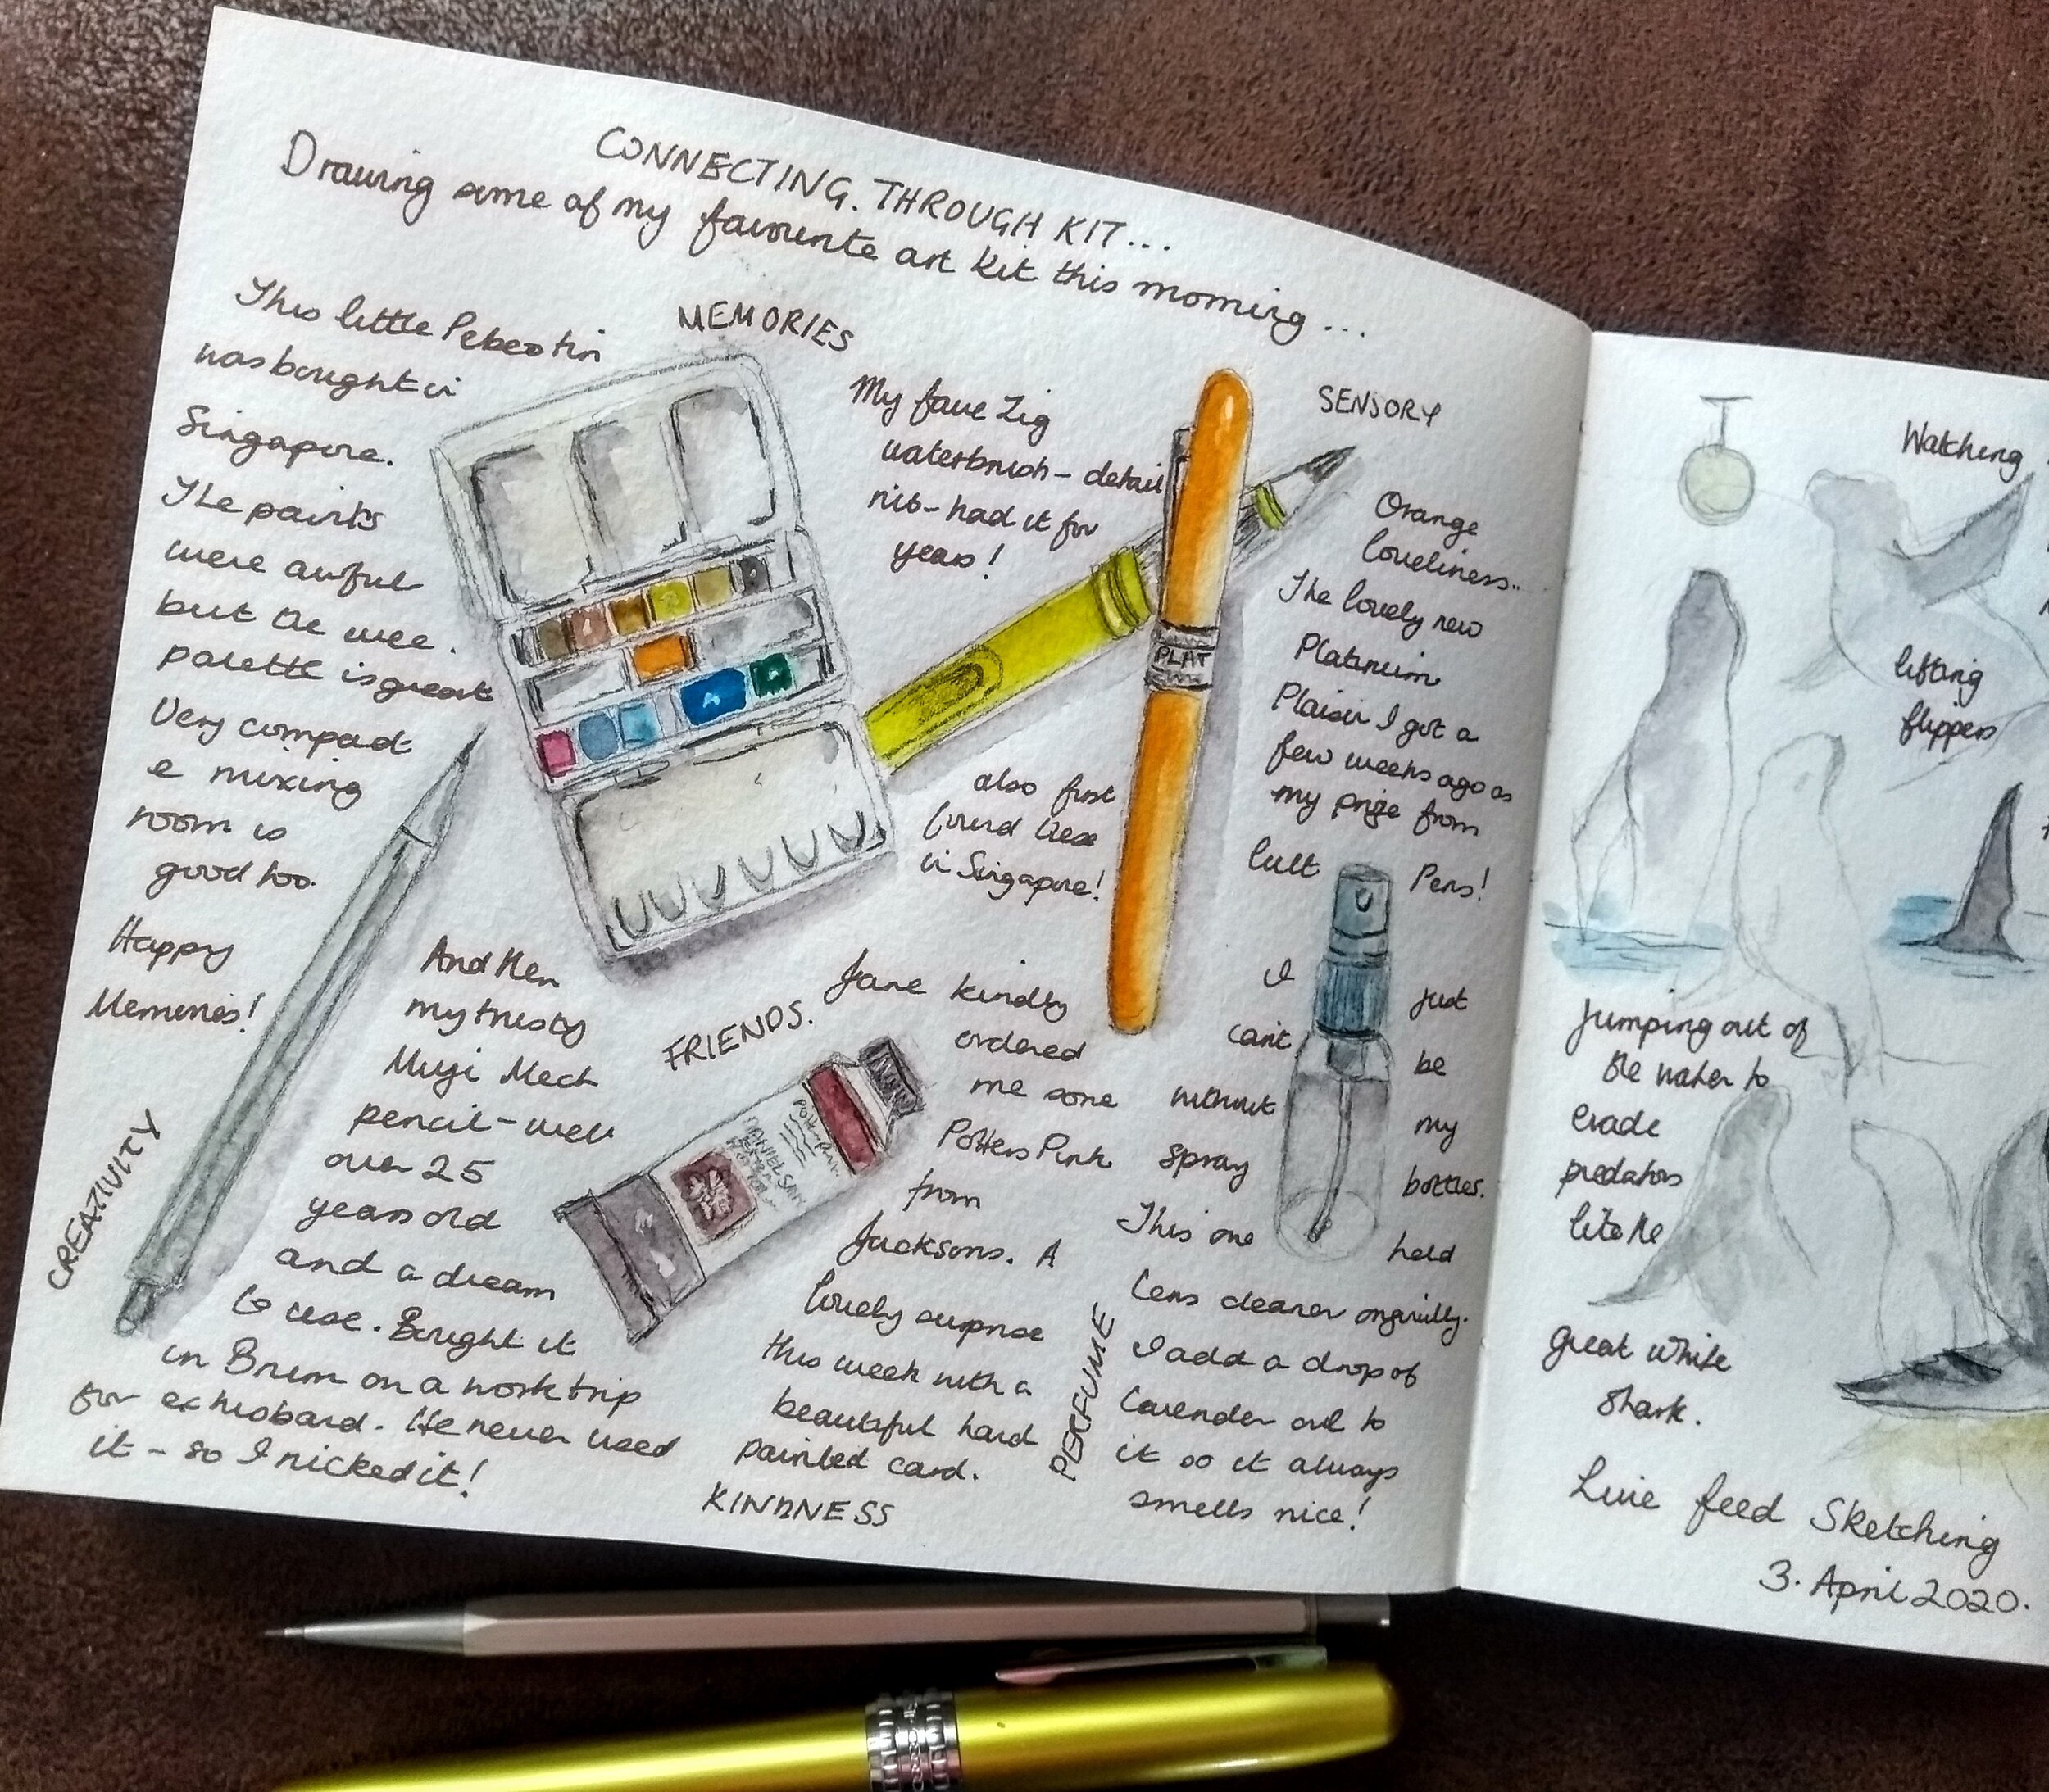 CONNECTING. THROUGH KIT...
Drawing some of my favourite art kit this morning...
MEMORIES
This little Pebeo tin
was bought in
Singapore.
The paints
were awful
but the wee
palette is great
Very compact
& mixing
room is
good too.
Happy
Memories!
My fave Zig
waterbrush - detail
nib - had it for
years!
also first
found these
in Singapore!
SENSORY
Orange
loveliness..
The lovely new
Platinum
Plaisir I got a
few weeks ago as
my prize from
Cult Pens!
PLAT
CREATIVITY
And then
my trusty
Muji Mech
pencil - well
over 25
years old
and a dream
to use. Bought it
in Brum on a work trip
for ex husband. He never used
it - so I nicked it!
FRIENDS.
Jane kindly
ordered
me some
Potters Pink
from
Jacksons. A
lovely surprise
this week with a
beautiful hand
painted card.
KINDNESS
DANIEL SM
PERFUME
I just
can't be
without my
spray bottles.
This one held
lens cleaner originilly.
I add a drop of
lavender oil to
it so it always
smells nice!
Watching
lifting
flippers
Jumping out of
the water to
evade
predators
like the
great white
shark.
Live feed Sketching
3. April 2020.